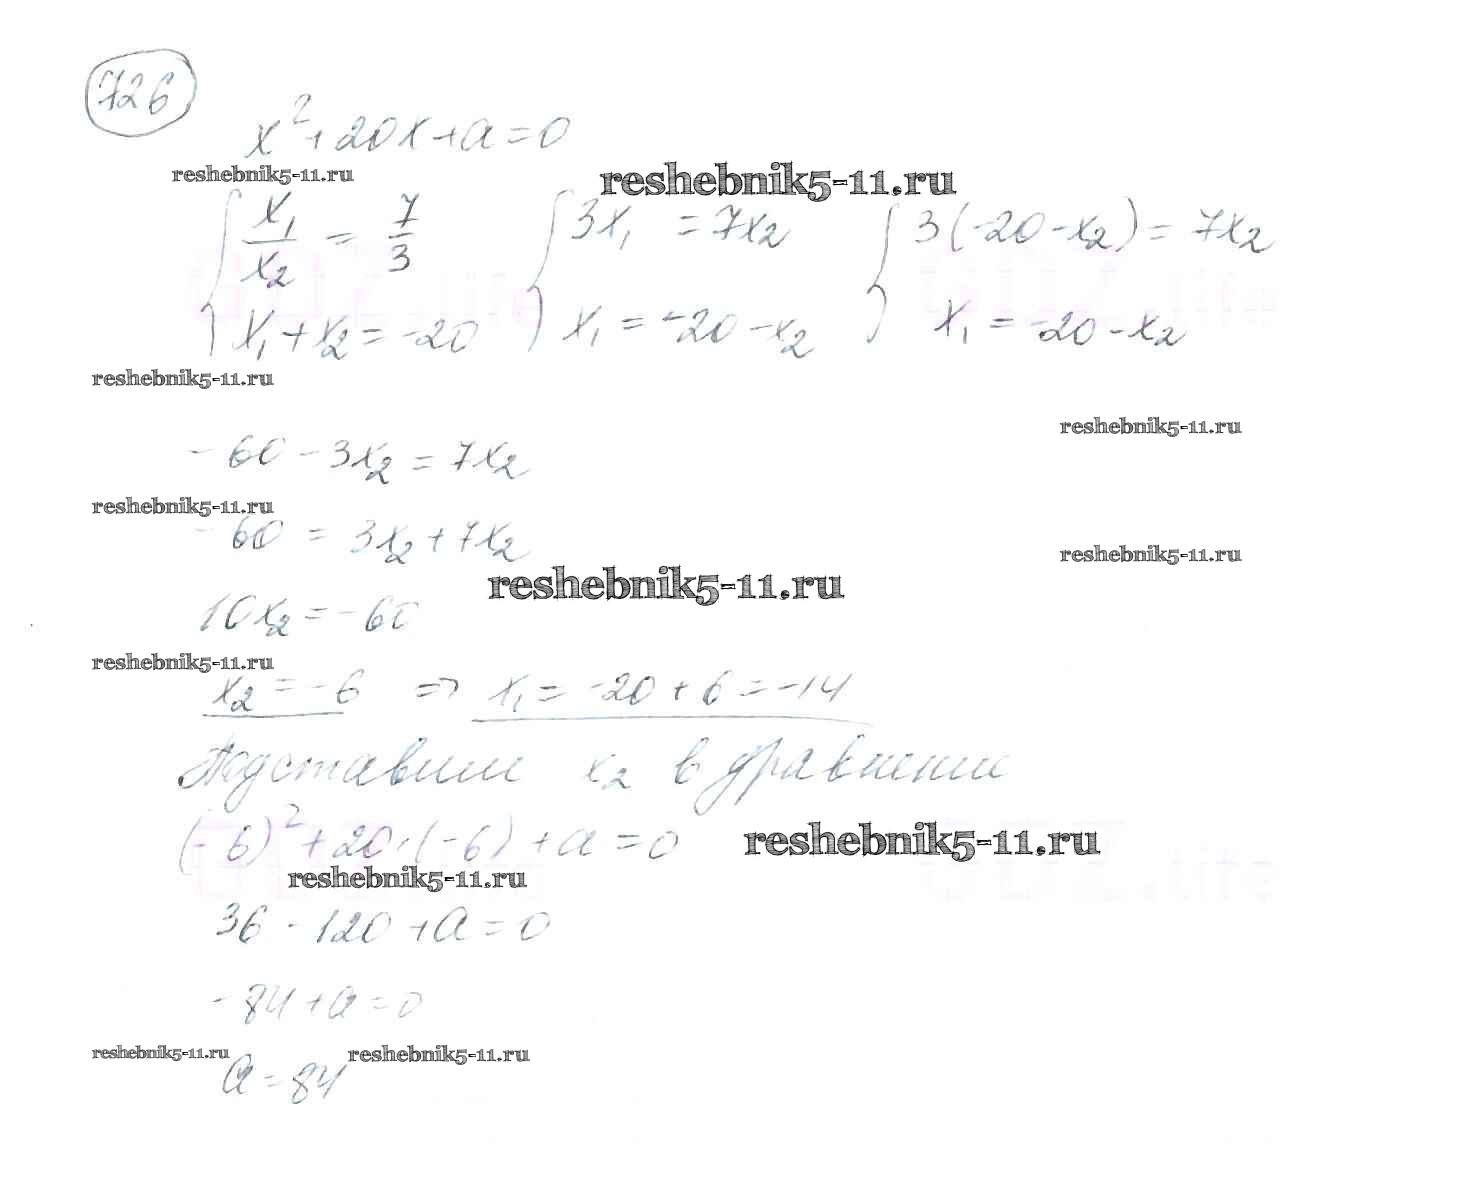 726
x² + 20x + a = 0
reshebnik5-11.ru reshebnik5-11.ru
{ x₁/x₂ = 7/3 { 3x₁ = 7x₂ { 3(-20 - x₂) = 7x₂
x₁ + x₂ = -20 x₁ = -20 - x₂ x₁ = -20 - x₂
reshebnik5-11.ru
reshebnik5-11.ru
- 60 - 3x₂ = 7x₂
reshebnik5-11.ru
- 60 = 3x₂ + 7x₂
reshebnik5-11.ru
reshebnik5-11.ru
10x₂ = -60
reshebnik5-11.ru
x₂ = -6 => x₁ = -20 + 6 = -14
Подставим x₂ в уравнении
(-6)² + 20·(-6) + a = 0 reshebnik5-11.ru
reshebnik5-11.ru
36 - 120 + a = 0
-84 + a = 0
reshebnik5-11.ru reshebnik5-11.ru
a = 84